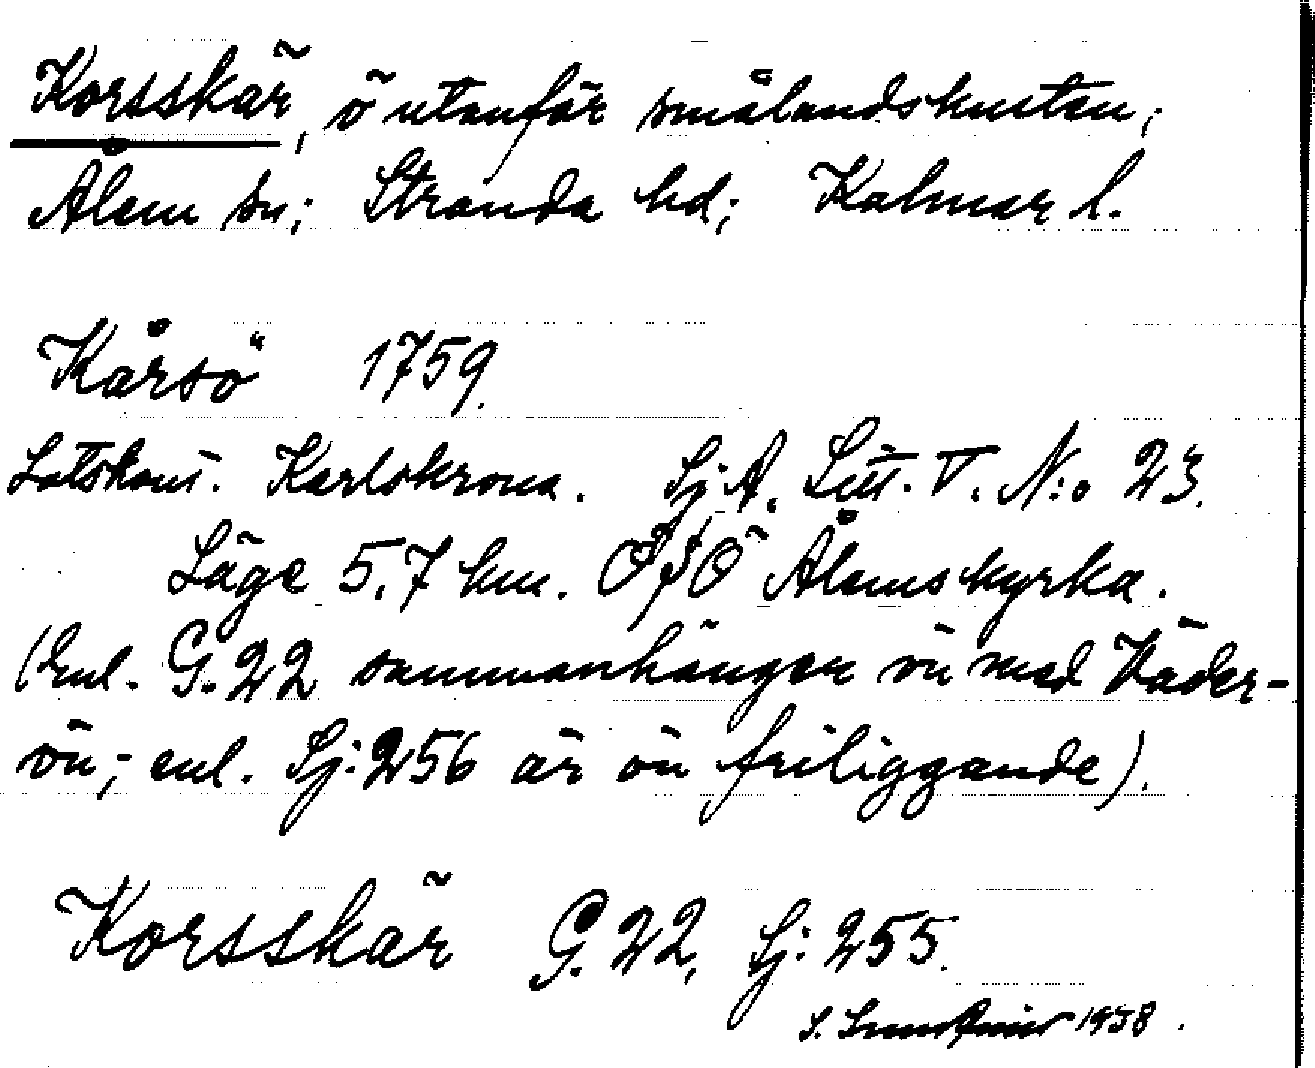 Korsskär, ö utanför smålandskusten;
Ålem sn; Stranda hd; Kalmar l.
Kårsö 1759.
Lotskont. Karlskrona. Sj.A. Litt. V. N:o 23.
Läge 5,7 km. OSO Ålems kyrka.
(Enl. G.22 sammanhänger ön med Väder-
ön; enl. Sj:256 är ön friliggande).
Korsskär G. 22, Sj: 255.
S. 1958.